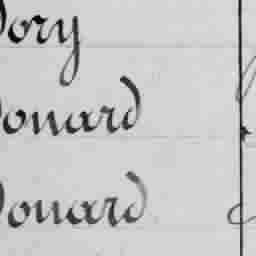 Dory
Douard
Douard